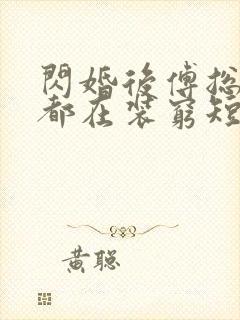 閃婚後傅総
都在裝窮短
黃聰